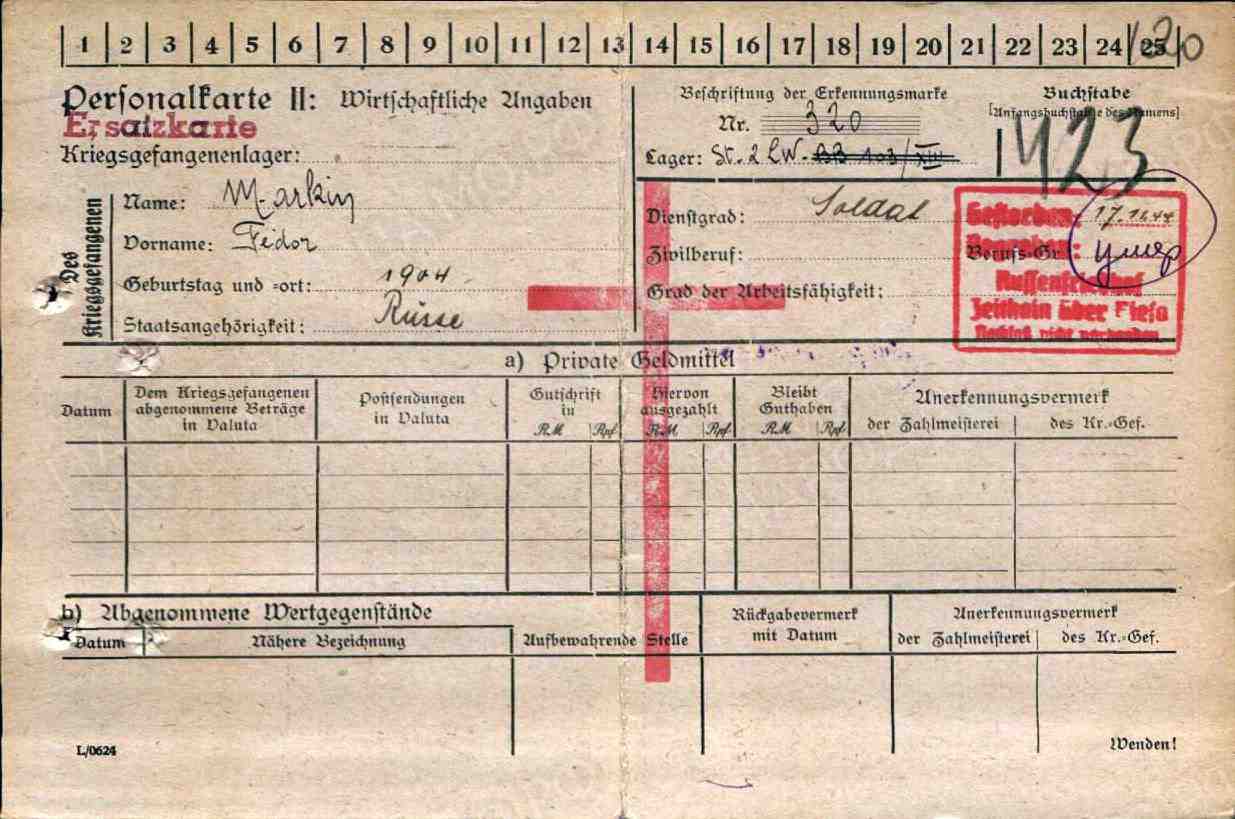 1 2 3 4 5 6 7 8 9 10 11 12 13 14 15 16 17 18 19 20 21 22 23 24 25
Personalkarte II: Wirtschaftliche Angaben
Ersatzkarte
Kriegsgefangenenlager:
Beschriftung der Erkennungsmarke
Nr. 320
Lager: St. 2 LW.
Buchstabe
[Anfangsbuchstabe des Namens]
423
Des Kriegsgefangenen
Name: Markin
Vorname: Fedor
Geburtstag und =ort: 1904
Staatsangehörigkeit: Russe
Dienstgrad: Soldat
Zivilberuf: Berufs-Gr.
Grad der Arbeitsfähigkeit:
Gestorben: 17.
умер
Russenfriedhof
Zeithain über Riesa
Nachlaß nicht vorhanden.
a) Private Geldmittel
Datum
Dem Kriegsgefangenen abgenommene Beträge in Valuta
Postsendungen in Valuta
Gutschrift in
RM Rpf.
Hiervon ausgezahlt
RM Rpf.
Bleibt Guthaben
RM Rpf.
Anerkennungsvermerk
der Zahlmeisterei des Kr.=Gef.
b) Abgenommene Wertgegenstände
Datum Nähere Bezeichnung
Aufbewahrende Stelle
Rückgabevermerk mit Datum
Anerkennungsvermerk
der Zahlmeisterei des Kr.=Gef.
L/0624
Wenden!